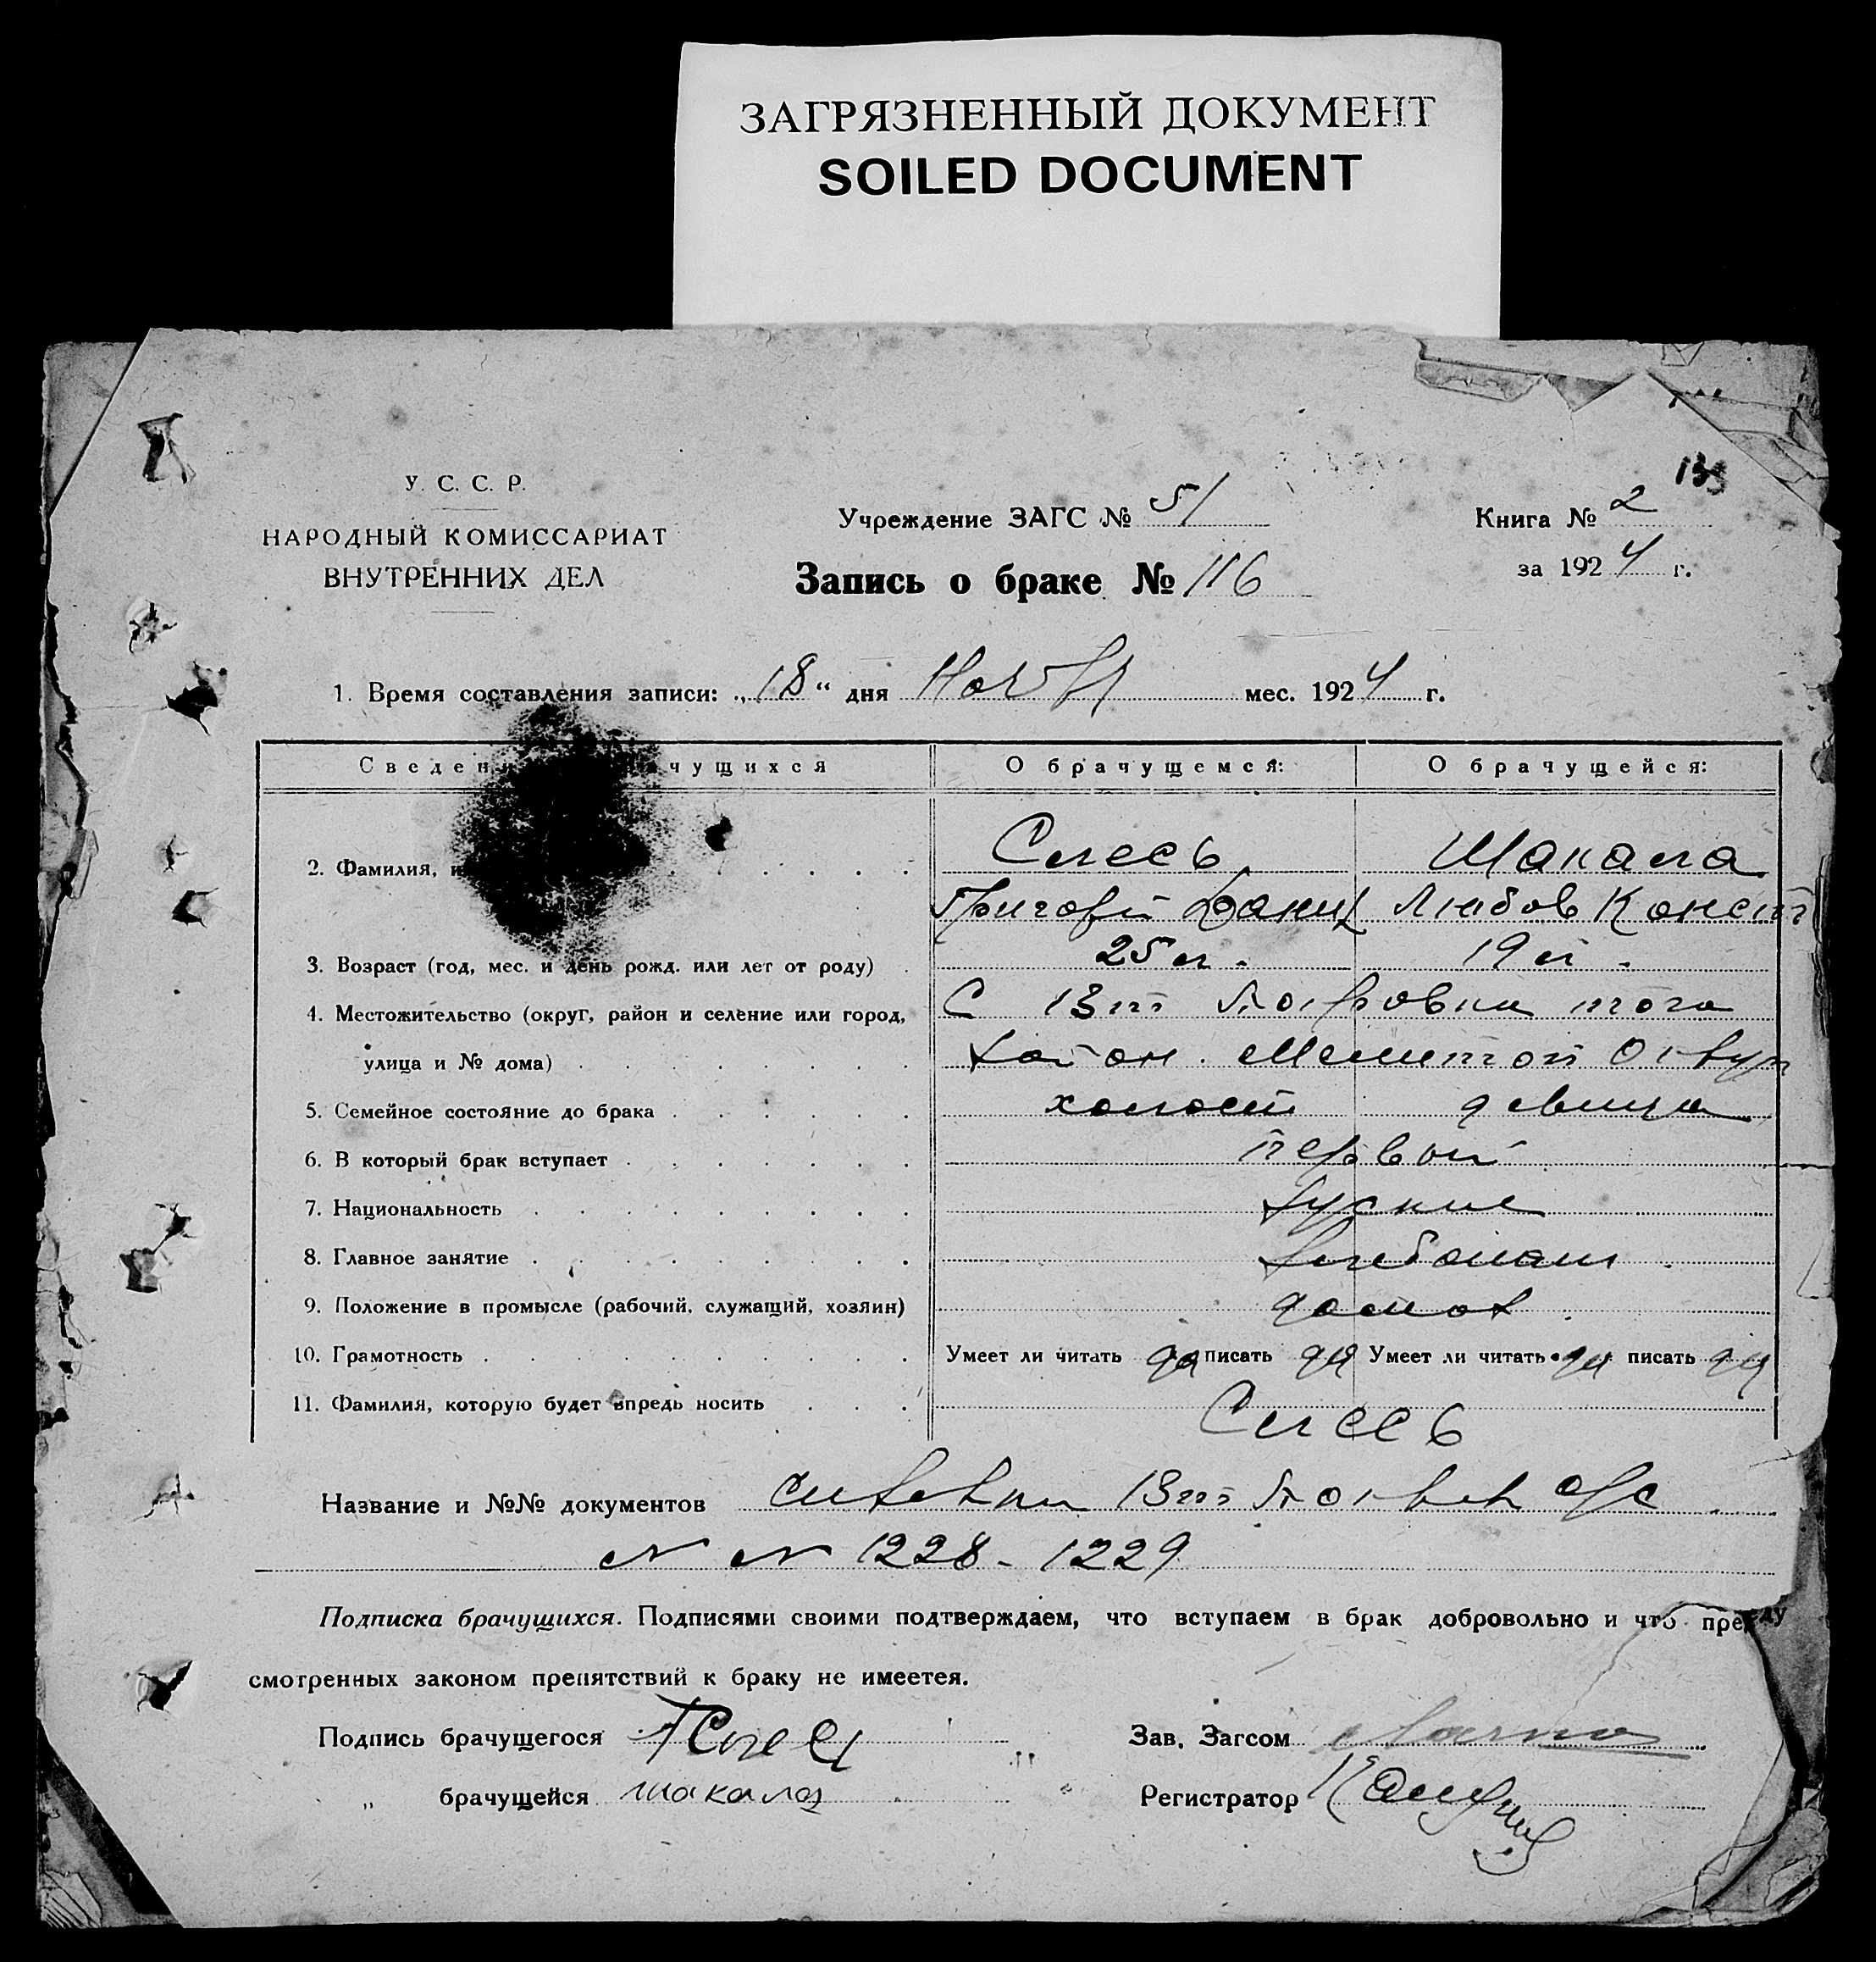 ЗАГРЯЗНЕННЫЙ ДОКУМЕНТ
SOILED DOCUMENT
133
У. С. С. Р.
НАРОДНЫЙ КОМИССАРИАТ
ВНУТРЕННИХ ДЕЛ
Учреждение ЗАГС № 51
Запись о браке № 116
Книга № 2
за 1924 г.
1. Время составления записи: „18“ дня мес. 1924 г.
О брачущемся: О брачущейся:
2. Фамилия, Слесь Шакала
Григорй Данил Любов Конст
3. Возраст (год, мес. и день рожд. или лет от роду) 25 л. 19 л.
4. Местожительство (округ, район и селение или город, С
улица и № дома) Мелитоп
5. Семейное состояние до брака холост девица
6. В который брак вступает первый
7. Национальность руские
8. Главное занятие хлебопаш
9. Положение в промысле (рабочий, служащий, хозяин)
10. Грамотность Умеет ли читать да писать да Умеет ли читать да писать да
11. Фамилия, которую будет впредь носить Слесь
Название и №№ документов
N N 1228 - 1229
Подписка брачущихся. Подписями своими подтверждаем, что вступаем в брак добровольно и что преду
смотренных законом препятствий к браку не имеетея.
Подпись брачущегося ГСлесь Зав. Загсом
„ брачущейся шакала Регистратор